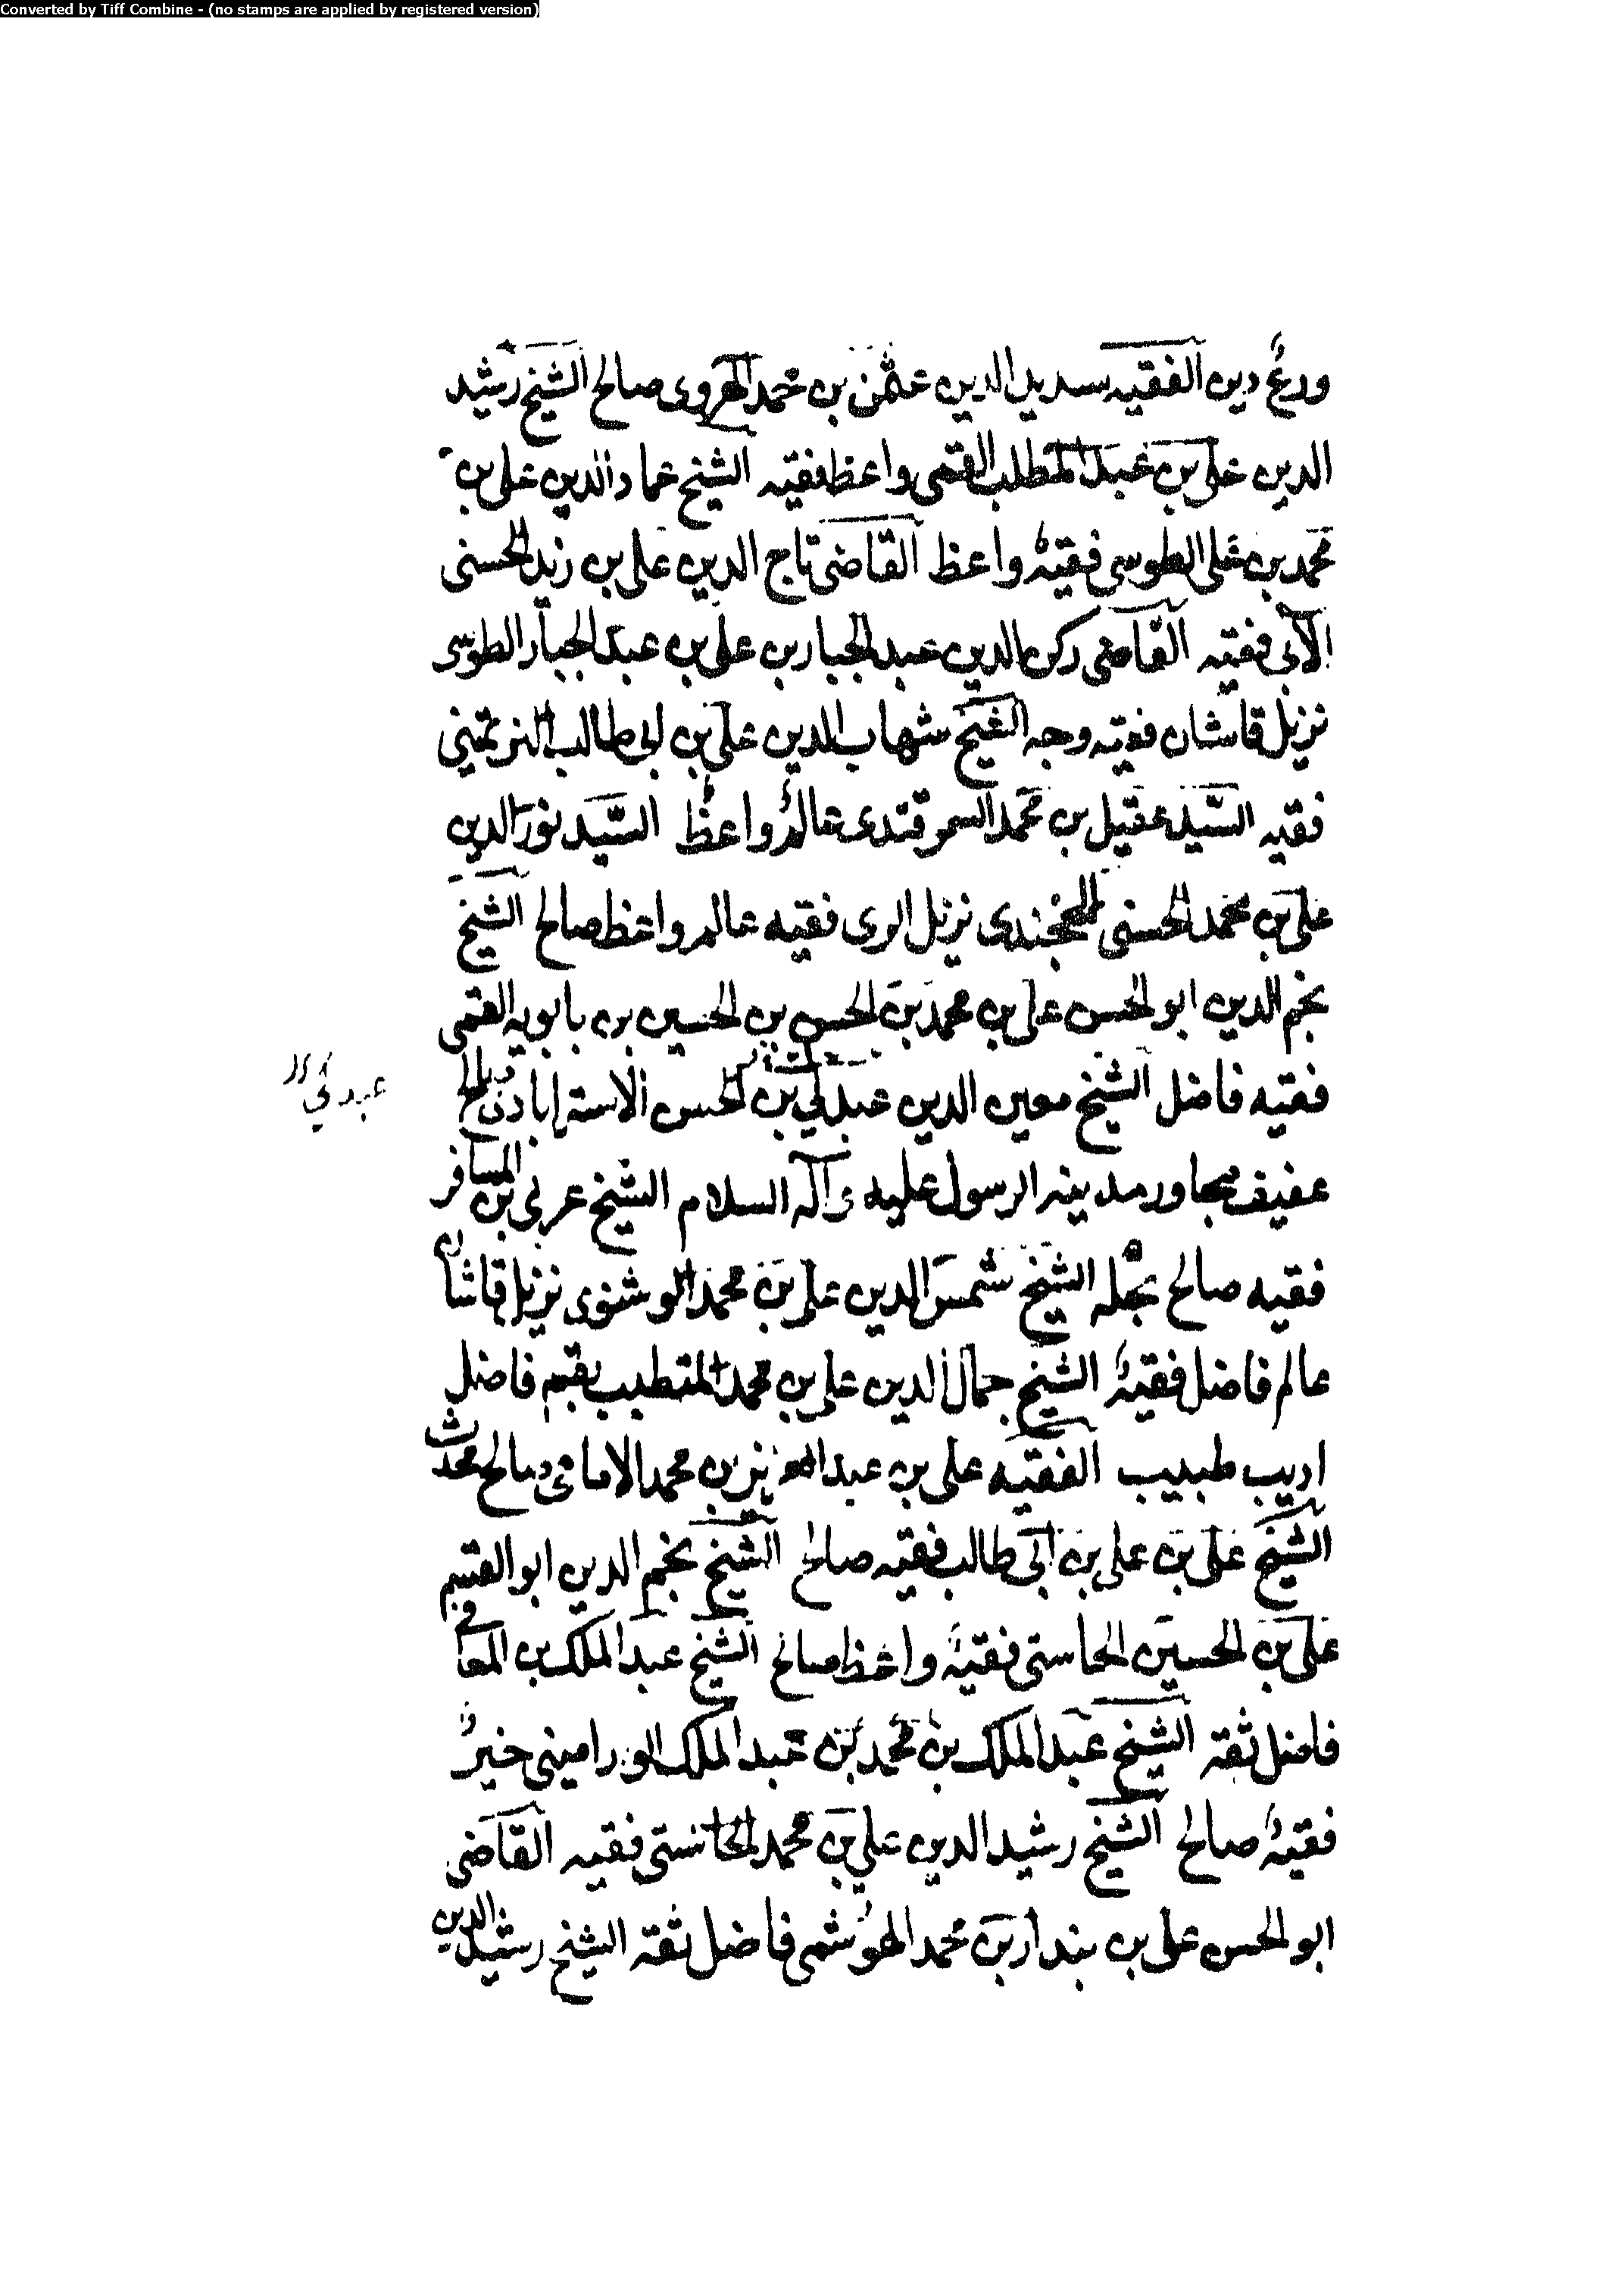 Converted by Tiff Combine - (no stamps are applied by registered version)
ورع دين الفقيه سديد الدين عثمن بن محمد الهروى صالح الشيخ رشيد
الدين على بن عبد المطلب القمى واعظ فقيه الشيخ عماد الدين على بن
محمد بن على الطوسى فقيه واعظ القاضى تاج الدين على بن زيد الحسنى
الآبى فقيه القاضى ركن الدين عبد الجبار بن على بن عبد الجبار الطوسى
نزيل قاشان فقيه وجه الشيخ شهاب الدين على بن ابى طالب
فقيه السيد عقيل بن محمد السمرقندى عالم واعظ السيد نور الدين
على بن محمد الحسنى الخجندى نزيل الرى فقيه عالم واعظ صالح الشيخ
نجم الدين ابو الحسن على بن محمد بن الحسن بن الحسين بن بابويه القمى
فقيه فاضل الشيخ معين الدين بن الحسن الاسترابادى صالح
عفيف مجاور مدينه الرسول عليه و آله السلام الشيخ عربى بن المسافر
فقيه صالح بحله الشيخ شمس الدين على بن محمد الوشنوى نزيل قاشان
عالم فاضل فقيه الشيخ جمال الدين على بن محمد المتطبب بقم فاضل
اديب طبيب الفقيه على بن عبد العزيز بن محمد الامامى صالح محدث
الشيخ على بن على بن ابى طالب فقيه صالح الشيخ نجم الدين ابو القسم
على بن الحسين الجاستى فقيه واعظ صالح الشيخ عبد الملك بن المعافى
فاضل ثقه الشيخ عبد الملك بن محمد بن عبد الملك الورامينى خير
فقيه صالح الشيخ رشيد الدين على بن محمد الجاستى فقيه القاضى
ابو الحسن على بن بندار بن محمد الهوشمى فاضل ثقه الشيخ رشيد الدين